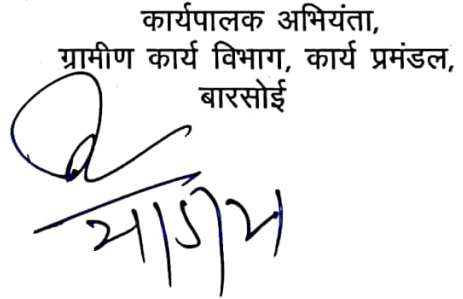 कार्यपालक अभियंता,
ग्रामीण कार्य विभाग, कार्य प्रमंडल,
बारसोई